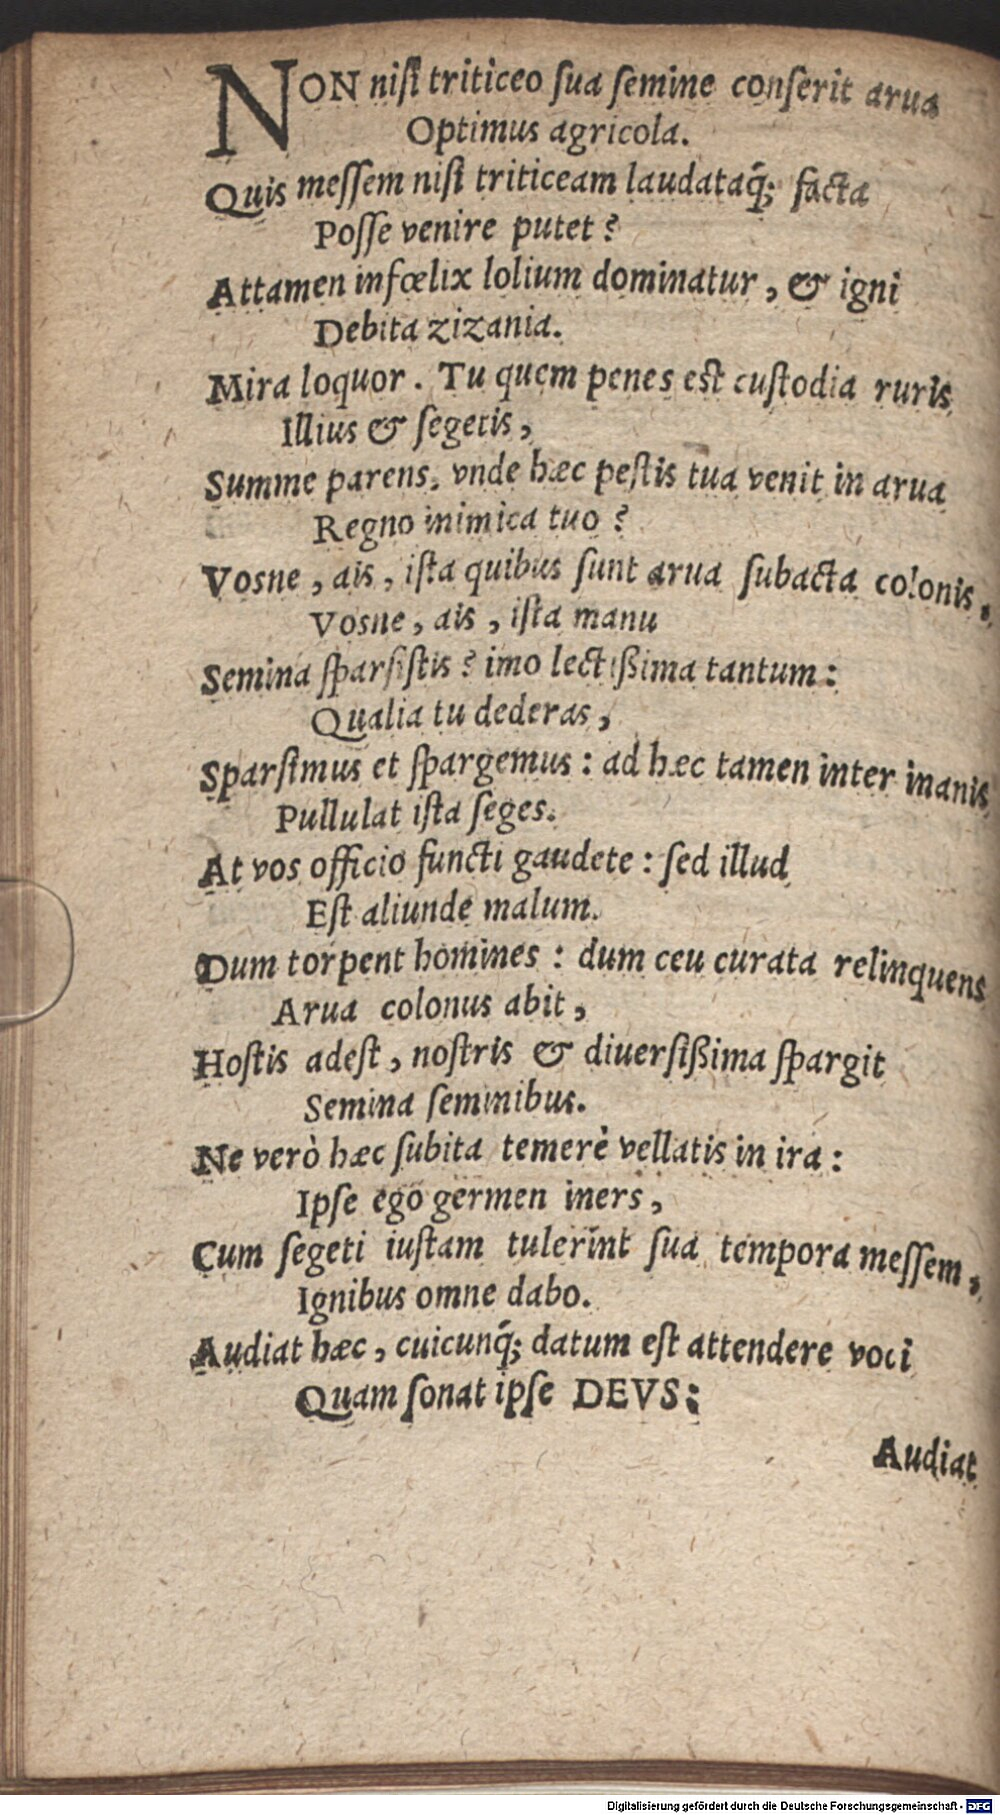 NON niſi triticeo ſua ſemine conſerit arua
Optimus agricola.
Quis meſſem niſi triticeam laudataq́; facta
Poſſe venire putet?
Attamen infœlix lolium dominatur, & igni
Debita zizania.
Mira loquor. Tu quem penes eſt cuſtodia ruris
Illius & ſegetis,
Summe parens, vnde hæc peſtis tua venit in arua
Regno inimica tuo?
Vosne, ais, iſta quibus ſunt arua ſubacta colonis,
Vosne, ais, iſta manu
Semina ſparſiſtis? imo lectißima tantum:
Qualia tu dederas,
Sparſimus et ſpargemus: ad hæc tamen inter inanis
Pullulat iſta ſeges.
At vos officio functi gaudete: ſed illud
Eſt aliunde malum.
Dum torpent homines: dum ceu curata relinquens
Arua colonus abit,
Hoſtis adeſt, noſtris & diuerſißima ſpargit
Semina ſeminibus.
Ne verò hæc ſubita temerè vellatis in ira:
Ipſe ego germen iners,
Cum ſegeti iuſtam tulerint ſua tempora meſſem,
Ignibus omne dabo.
Audiat hæc, cuicunq́; datum eſt attendere voci
Quam ſonat ipſe DEVS:
Audiat
Digitalisierung gefördert durch die Deutsche Forschungsgemeinschaft - DFG